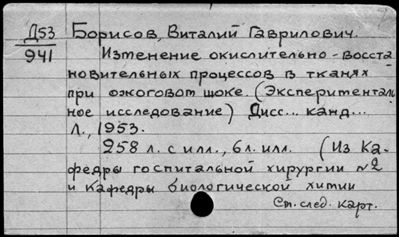 Д53
941
Борисов, Виталий Гаврилович.
Изменение окислительно-восста
новительных процессов в тканях
при ожоговом шоке. (Эксперименталь
ное исследование) Дисс... канд...
Л., 1953.
258 л. с илл., 6 л. илл. (Из ка-
федры госпитальной хирургии №2
и кафедры биологической химии
См. след. карт.